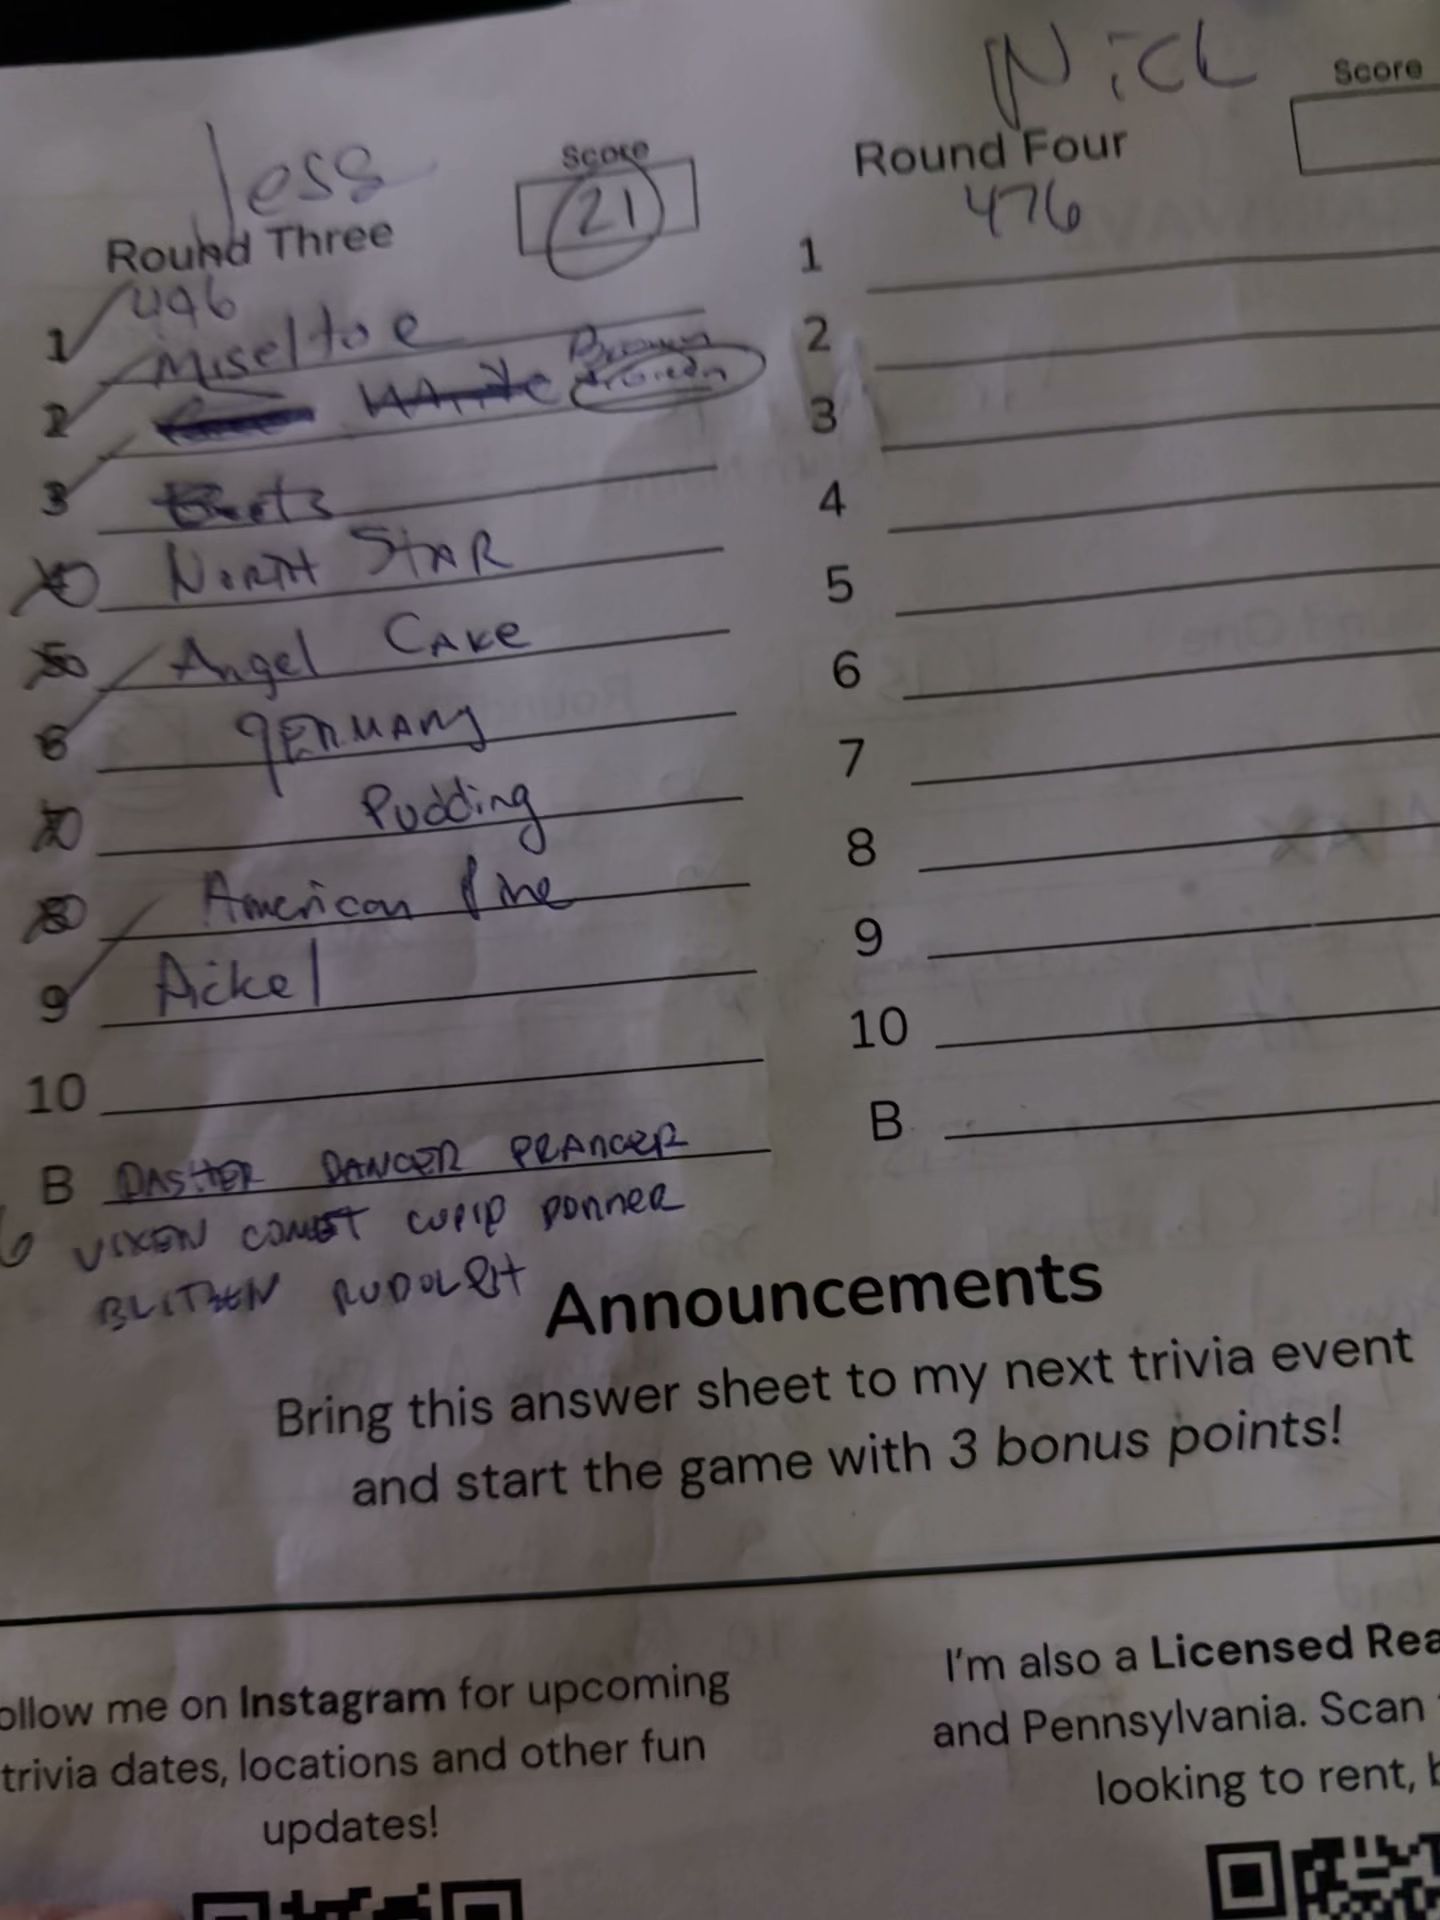 Jess
Score
21
Round Three
496
1 Miseltoe
2 White Brown
3
4 NORTH STAR
5 Angel CAKe
6 GERMANY
7 Pudding
8 American Pine
9 Pickel
10
B DASHER DANCER PRANCER
VIXEN COMET CUPID DONNER
BLITZEN RUDOLPH
Nick
Score
Round Four
476
1
2
3
4
5
6
7
8
9
10
B
Announcements
Bring this answer sheet to my next trivia event
and start the game with 3 bonus points!
ollow me on Instagram for upcoming
trivia dates, locations and other fun
updates!
I'm also a Licensed Rea
and Pennsylvania. Scan
looking to rent, b